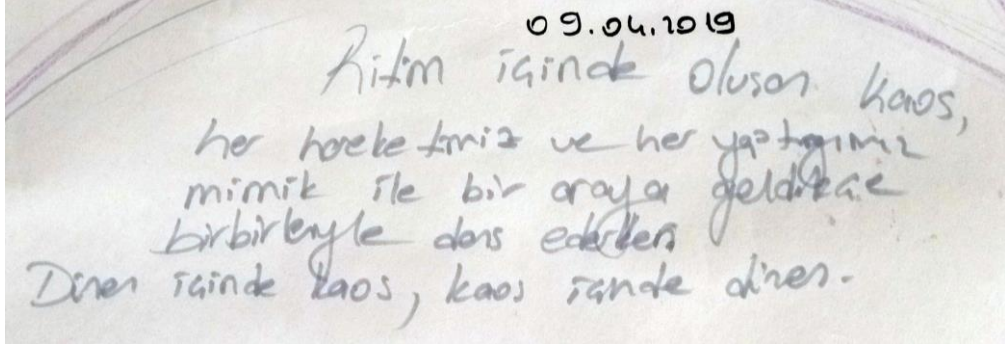 09.04.2019
Ritim içinde oluşan kaos,
her hareketimiz ve her yaptığımız
mimik ile bir araya geldikçe
birbirleriyle dans ederken
içinde kaos, kaos içinde